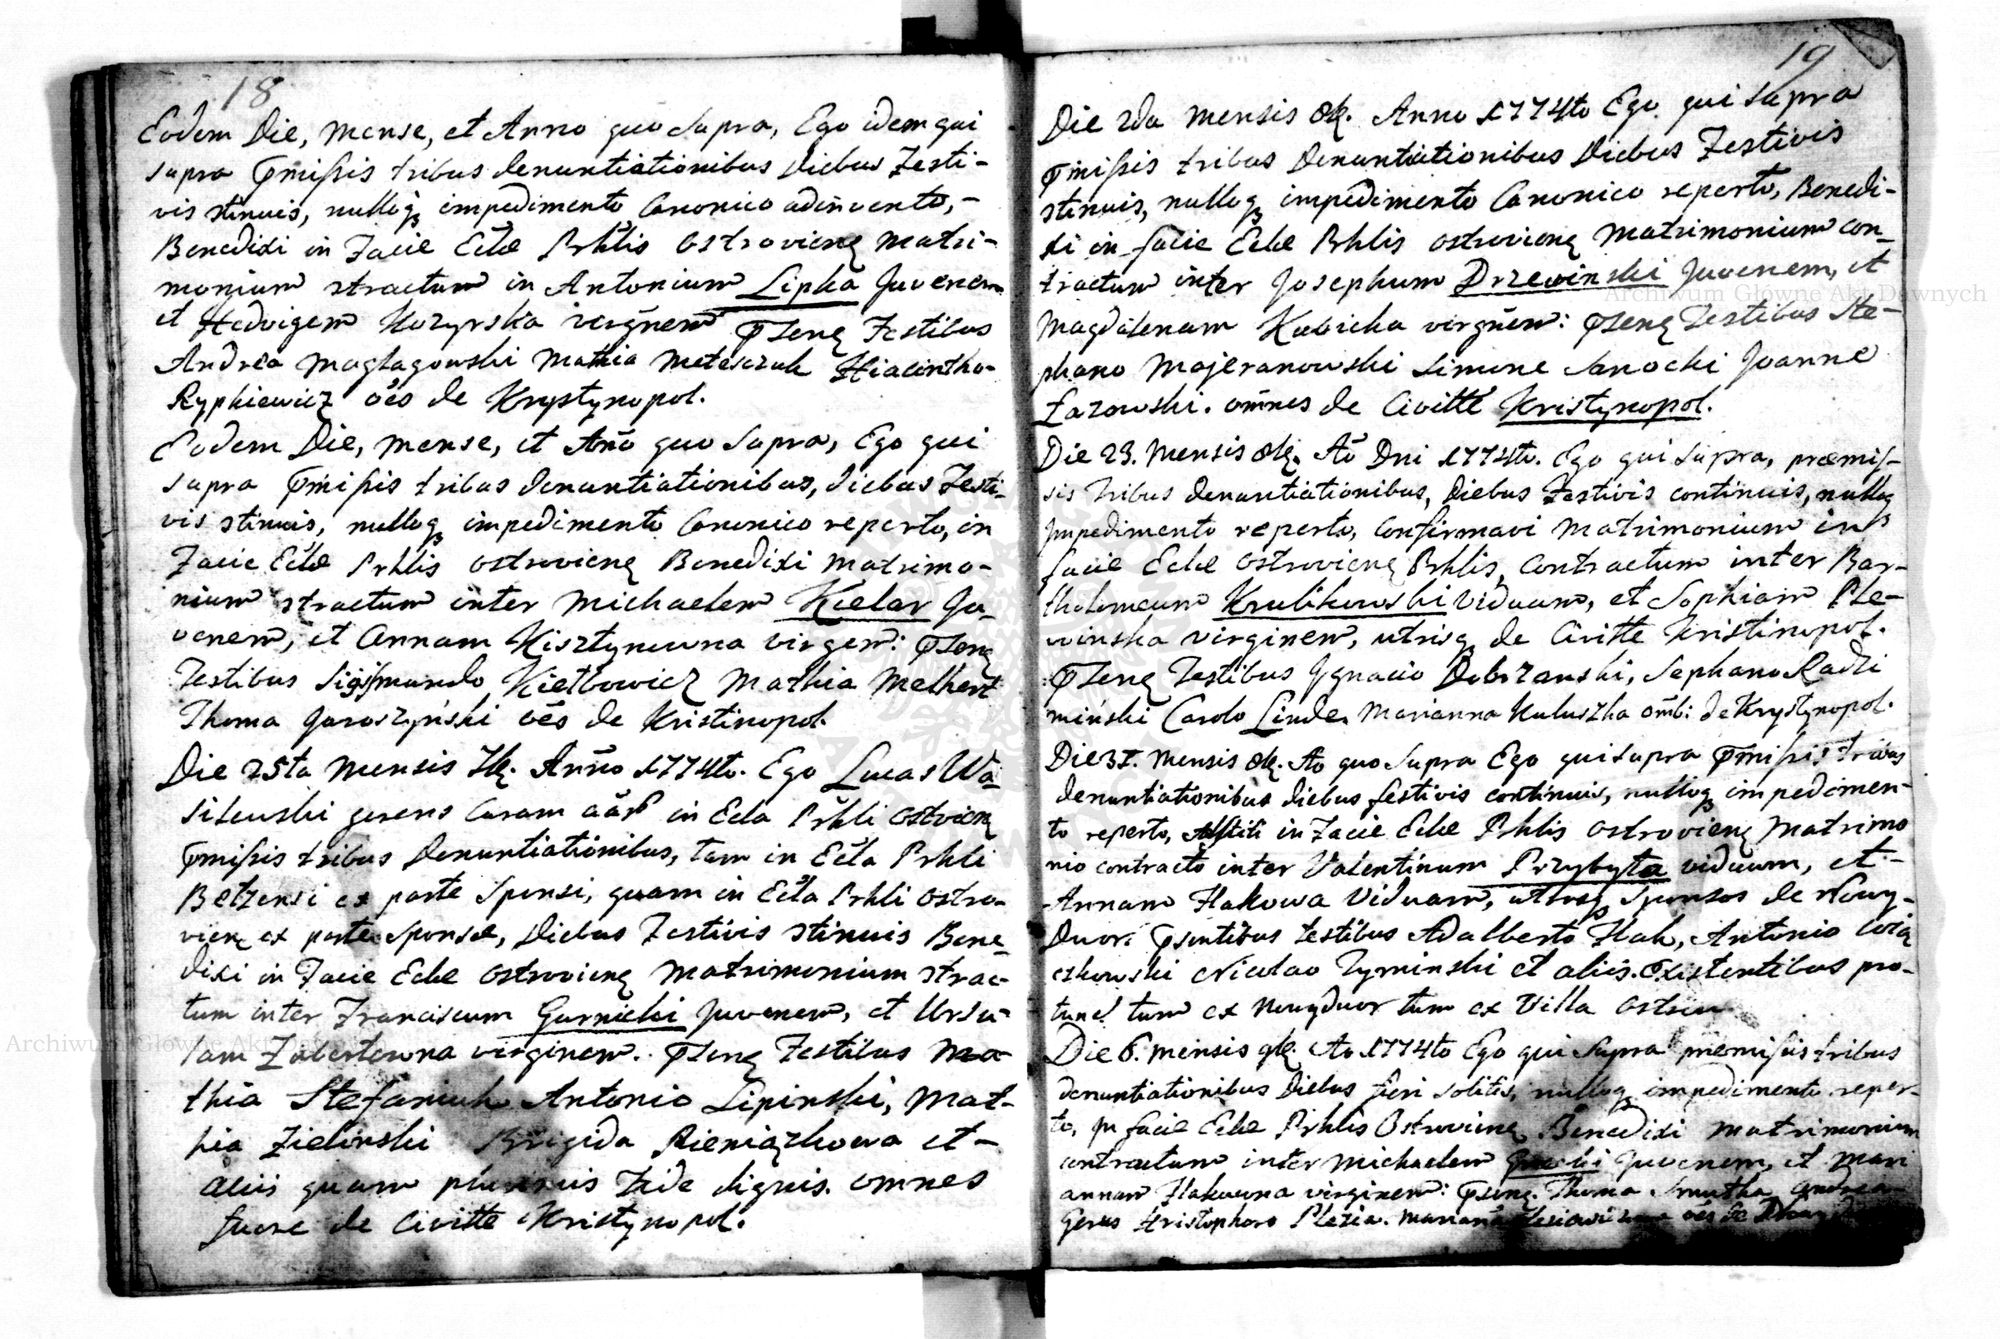 18
Eodem Die, Mense, et Anno quo Supra, Ego idem qui
supra p̄missis tribus denuntiationibus Diebus Festi-
vis stinuis, nulloq; impedimento Canonico adinvento,-
Benedixi in Facie Eccłæ Prhlis Ostroviens; Matri-
monium stractum in Antonium Lipka Juvenem
et Hedvigem Kozyrska virgīnem p̄sens; Testibus
Andrea Maglagowski Mathia Meteszuk Hiacintho-
Rypkiewicz oēs de Krystynopol.
Eodem Die, Mense, et Ano quo Supra, Ego qui
supra p̄missis tribus Denuntiationibus, diebus Festi-
vis stinuis, nulloq; impedimento Canonico reperto, in
Facie Eccłæ Prhlis Ostroviens; Benedixi Matrimo-
nium stractum inter Michaelem Kielar Ju-
venem, et Annam Kisztynowna virgem: p̄sens;
Testibus Sigismundo Kiełbowicz Mathia Melhert
Thoma Jaroszyński oēs de Kristinopol.
Die 25ta Mensis 7br; Anno 1774to. Ego Lucas Wa-
silewski gerens Curam in Eccła Prhli Ostviens;
p̄missis tribus Denuntiationibus, tam in Eccła Prhli
Bełzensi ex parte Sponsi, quam in Eccła Prhli Ostro-
viens; ex parte Sponsæ, Diebus Festivis stinuis Bene-
dixi in Facie Ecclæ Ostroviens; Matrimonium strac-
tum inter Franciscum Gurnicki Juvenem, et Ursu-
lam Zubertowna virginem. p̄sens; Testibus Ma-
thia Stefaniuk Antonio Lipinski, Mat-
hia Zielinski Brigida Pieniązkowa et-
aliis quam plurimis Fide dignis. omnes
fuere de Civitte Kristynopol.
19
Die 2da Mensis 8br. Anno 1774to Ego qui Supra
p̄missis tribus Denuntiationibus Diebus Festivis
stinuis, nulloq; impedimento Canonico reperto, Benedi-
xi in facie Ecclæ Prhlis Ostroviens; Matrimonium con-
tractum inter Josephum Drzewinski Juvenem, et
Magdalenam Kubicka virgīnem: p̄sens; Testibus Ste-
phano Majeranowski Simone Sanocki Joanne
Łazowski. omnes de Civitte Kristynopol.
Die 23. Mensis 8br; Ao Dni 1774to. Ego qui Supra, præmis-
sis tribus denuntiationibus, Diebus Festivis continuis, nulloq;
impedimento reperto, Confirmavi Matrimonium in
facie Ecclæ Ostroviens; Prhlis, Contractum inter Bar-
tholomeum Krulikowski Viduum, et Sophiam Ple-
winska virginem, utrisq; de Civitte Kristinopol.
p̄sens; Testibus Ignacio Dobrzanski, Sephano Radzi
miński Carolo Linde, Marianna Kuluszka omb: de Krystynopol.
Die 31. Mensis 8br; Ao quo Supra Ego qui supra p̄missis tribus
denuntiationibus diebus festivis continuis, nulloq; impedimen-
to reperto, Astiti in Facie Ecclæ Prhlis Ostroviens; Matrimo
nio contracto inter Valentinum Przybyła viduum, et-
Annam Hakowa Viduam, utrosq; Sponsos de Nowy-
Dwor: p̄sentibus testibus Adalberto Hak, Antonio
czkowski Nicolao Zyminski et aliis. Existentibus pro-
tunc tum ex Nowydwor tum ex Villa Ostrow
Die 6. Mensis 9br; Ao 1774to Ego qui Supra premissis tribus
denuntiationibus Diebus fieri solitis, nulloq; impedimento reper-
to, in facie Ecclæ Prhlis Ostroviens; Benedixi Matrimonium
contractum inter Michaelem Juvenem, et Mari
annam Hakowna virginem: p̄sens; Thoma Andrea
Geras Kristophoro Plezia. Marianna oēs de
Archiwum Główne Akt Dawnych
Archiwum Główne Akt Dawnych